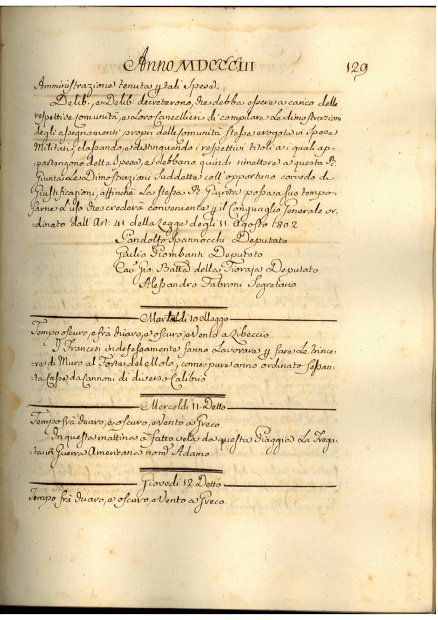 Anno MDCCCIII 129
Amministrazione tenuta p. tali Spese.
Delib., e Delib. decretarono, che debba essere a carico delle
respettive Comunità, e Loro Cancellieri di compilare Le dimostrazioni
degli assegnamenti propri delle Comunità stesse erogati in spese
Militari, classando, e distinguendo i respettivi titoli a i quali appartengono dette Spese, e debbano quindi rimettere a questa R.
Giunta Le Dimostrazioni suddette coll'opportuno corredo di
Giustificazioni, affinchè La stessa R. Giunta possa a suo tempo
farne L'uso che crederà conveniente p. il Conguaglio Generale ordinato dall'Art. 41 della Legge degli 11. Agosto 1802
Pandolfo Spannocchi Deputato
Giulio Piombanti Deputato
Cav. Gio. Batta della Fioraja Deputato
Alessandro Fabroni Segretario
Martedì 10 Maggio
Tempo oscuro, e frà chiaro, e oscuro, e Vento a Libeccio
I Francesi indefessamente fanno Lavorare p. fare Le trinciere di Muro al Forte del Molo, come pure anno ordinato sessanta Casse da Cannoni di diverso Calibro
Mercoldì 11. Detto
Tempo frà chiaro, e oscuro, e Vento a Greco
In questa mattina à fatto vela da questa Spiaggia La Fregata in Guerra Americana nom. Adamo
Giovedì 12. Detto
Tempo frà chiaro, e oscuro, e Vento a Greco.